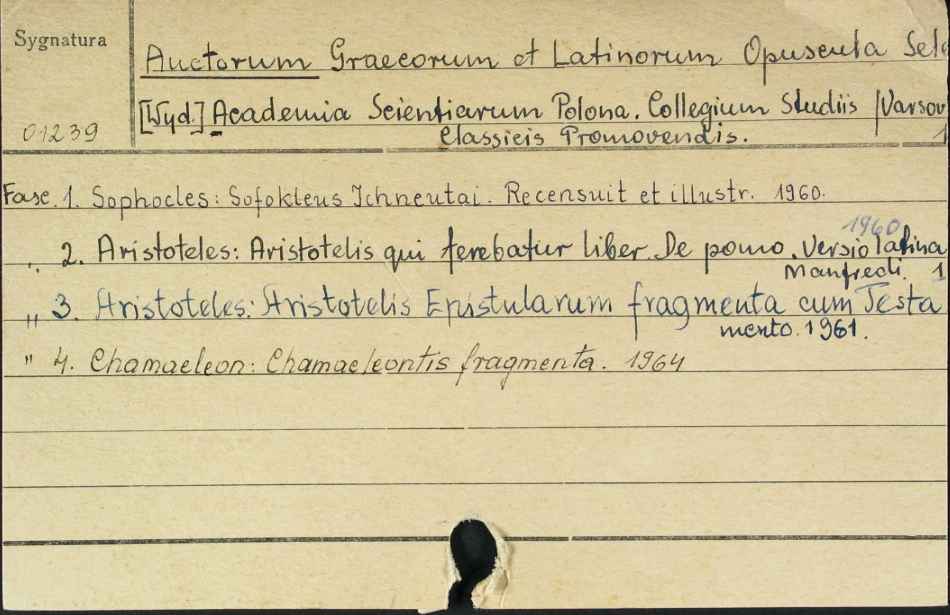 Sygnatura
Auctorum Graecorum et Latinorum Opuscula Sele
[Wyd.] Academia Scientiarum Polona. Collegium Studiis Varsov
01239
Classicis Promovendis.
Fasc. 1. Sophocles: Sofokleus Ichneutai. Recensuit et illustr. 1960.
1960
„ 2. Aristoteles: Aristotelis qui ferebatur liber De pomo. Versio latina
Manfredi. 1
„ 3. Aristoteles: Aristotelis Epistularum fragmenta cum Testa
mento. 1961.
" 4. Chamaeleon: Chamaeleontis fragmenta. 1964